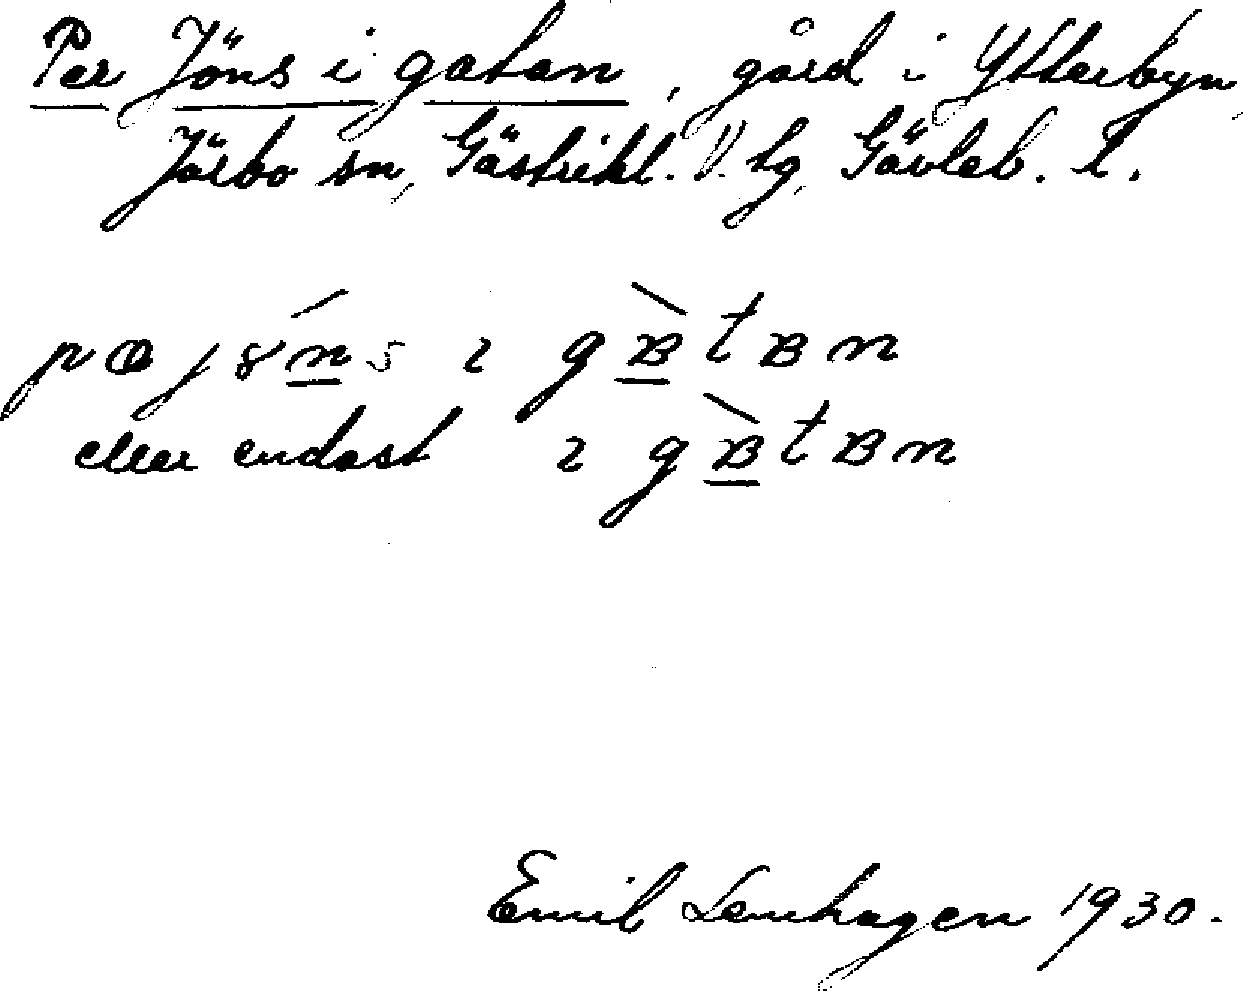 Per Jöns i gatan, gård i Ytterbyn,
Järbo sn, Gästrikl. V. tg, Gävleb. l.
eller endast
Emil Lenhagen 1930.